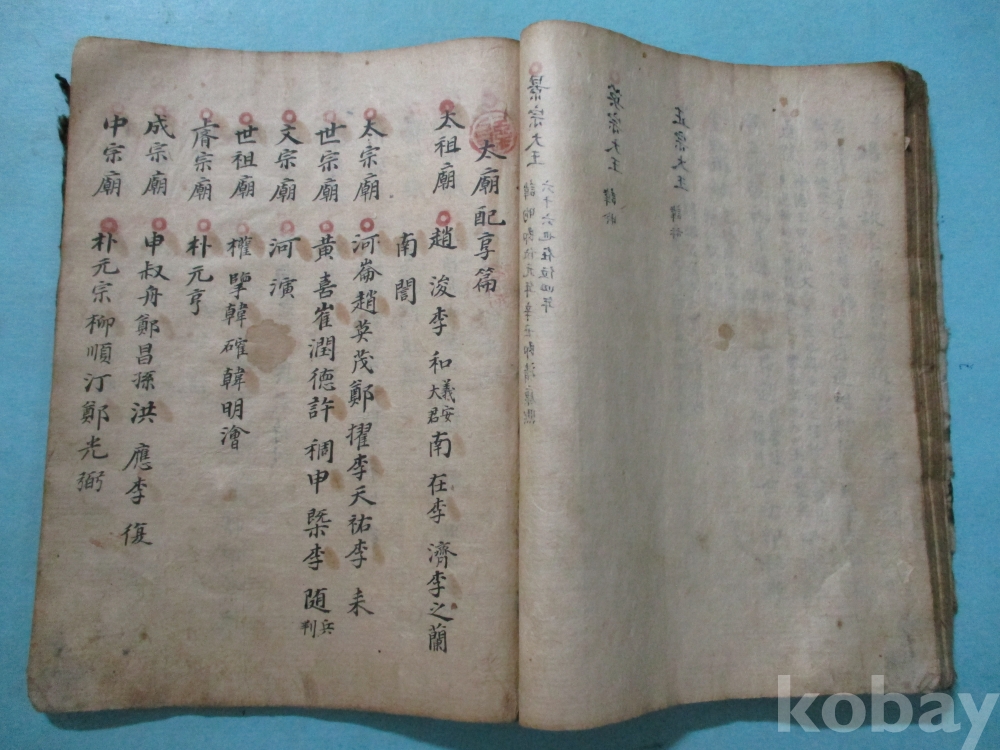 正宗大王 諱
英宗大王 諱昑
六十六世在位四年
景宗大王 諱昀即位元年辛丑即清康熙
太廟配享篇
太祖廟 趙浚李和義安大君南在李濟李之蘭
南誾
太宗廟 河崙趙英茂鄭擢李天祐李耒
世宗廟 黃喜崔潤德許稠申槩李隨兵判
文宗廟 河演
世祖廟 權擥韓確韓明澮
睿宗廟 朴元亨
成宗廟 申叔舟鄭昌孫洪應李復
中宗廟 朴元宗柳順汀鄭光弼
kobay